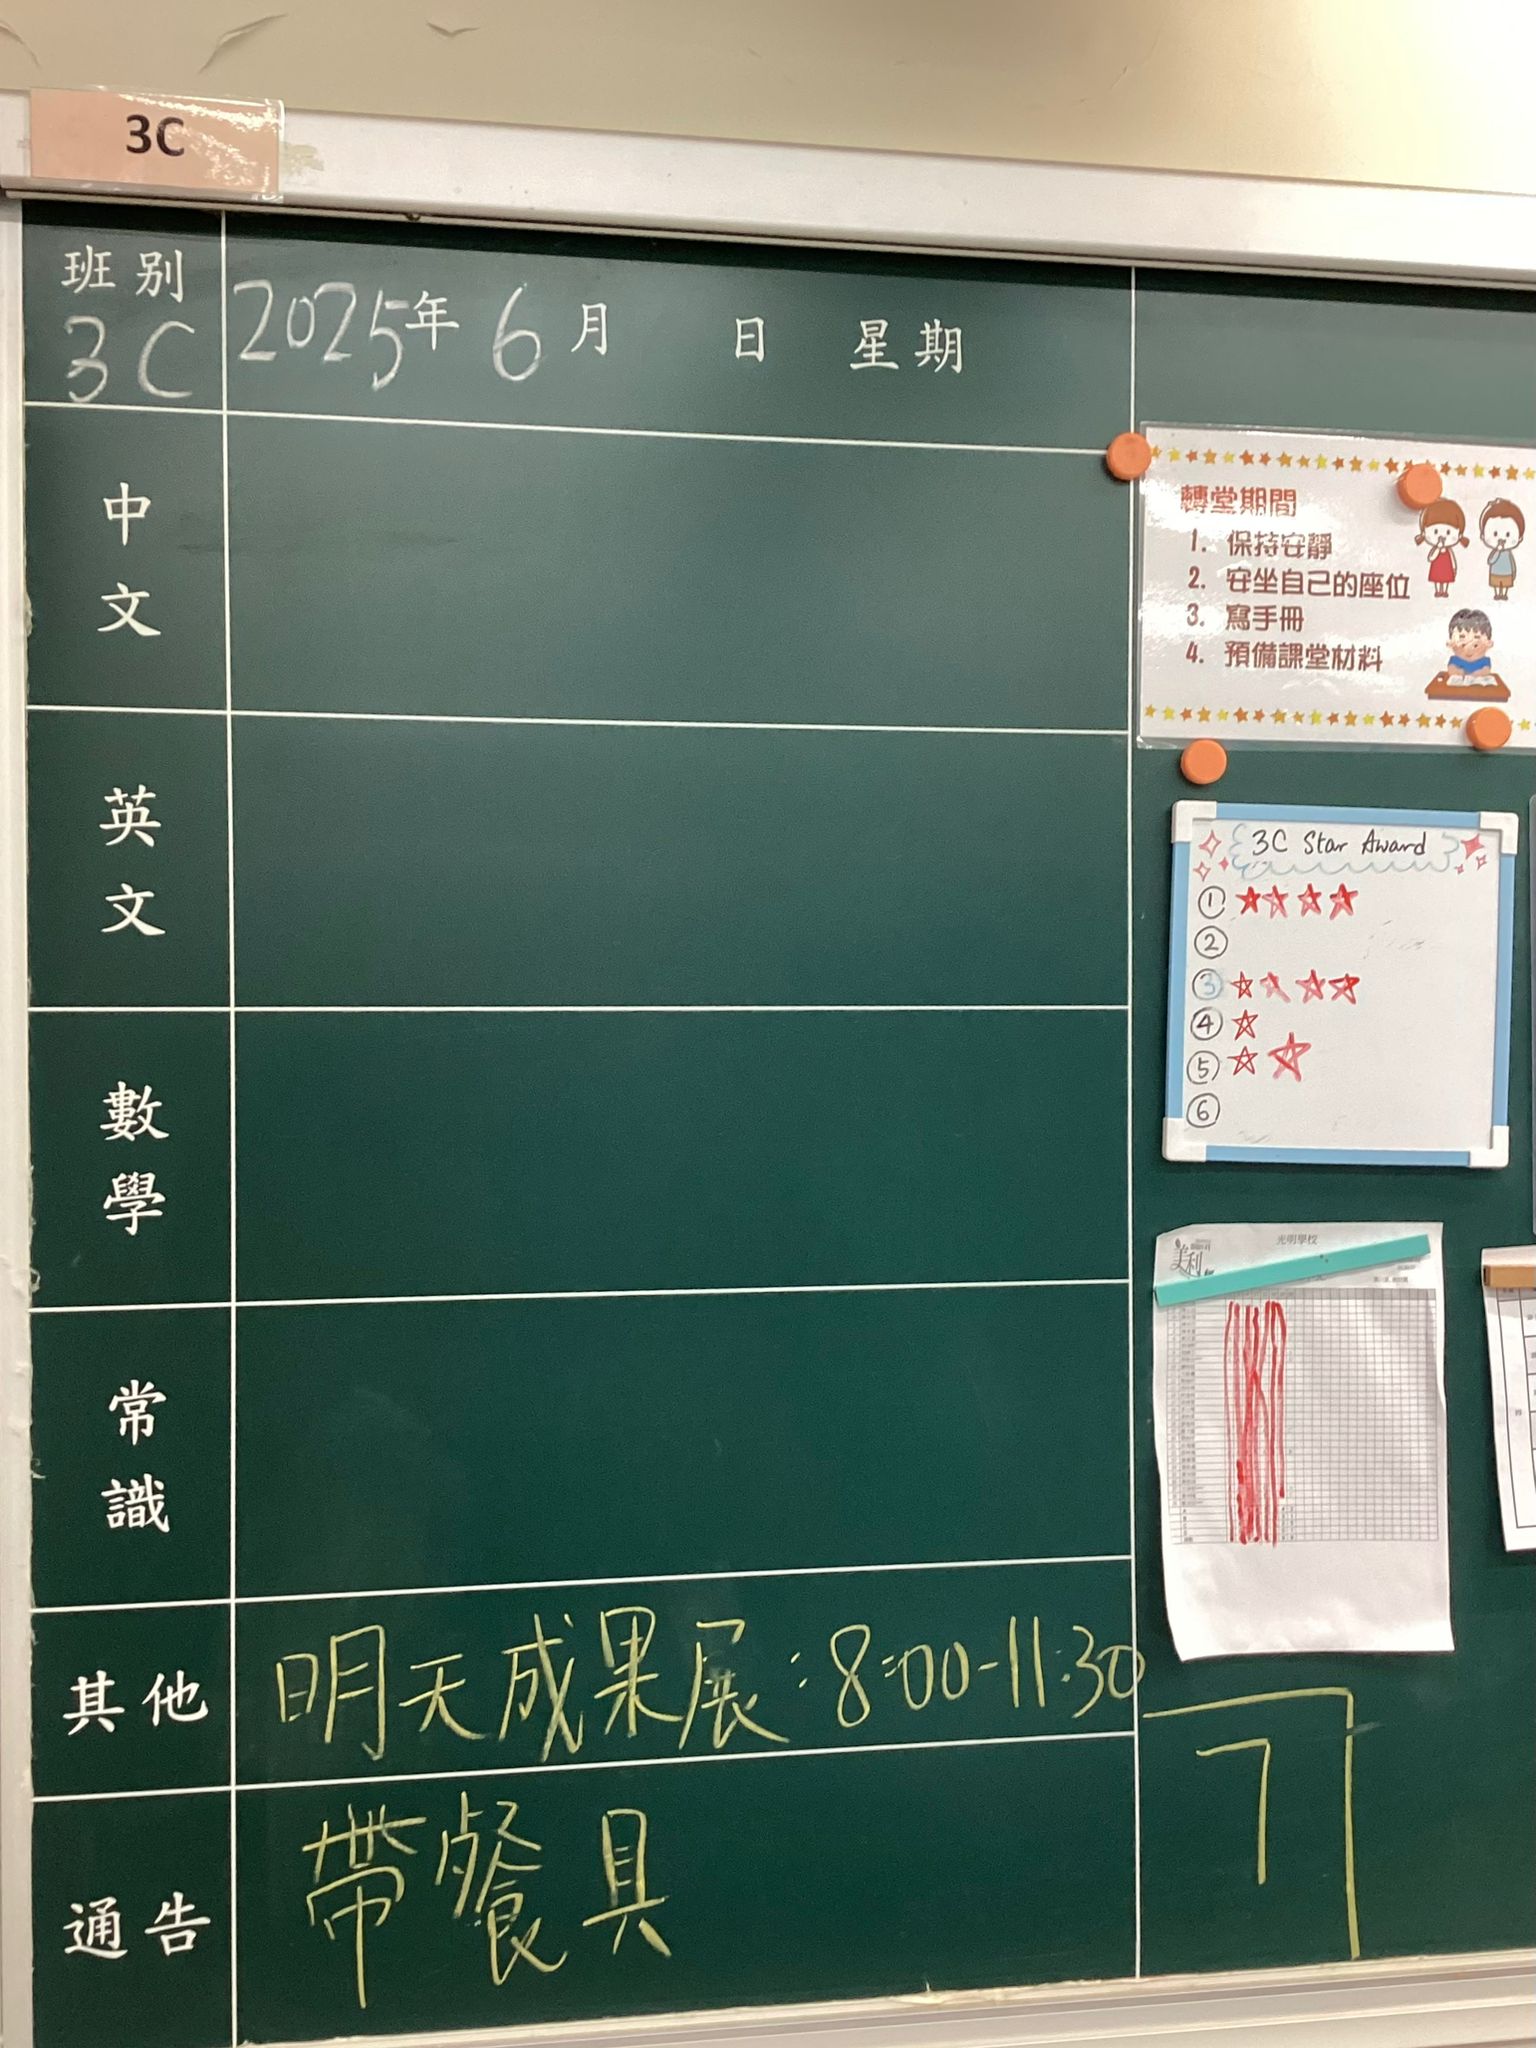 3C
班別
3C
2025年 6月 日 星期
中文
英文
數學
常識
其他
明天成果展:8:00-11:30
通告
帶餐具
轉堂期間
1. 保持安靜
2. 安坐自己的座位
3. 寫手冊
4. 預備課堂材料
3C Star Award
①
②
③
④
⑤
⑥
光明學校
美利
7